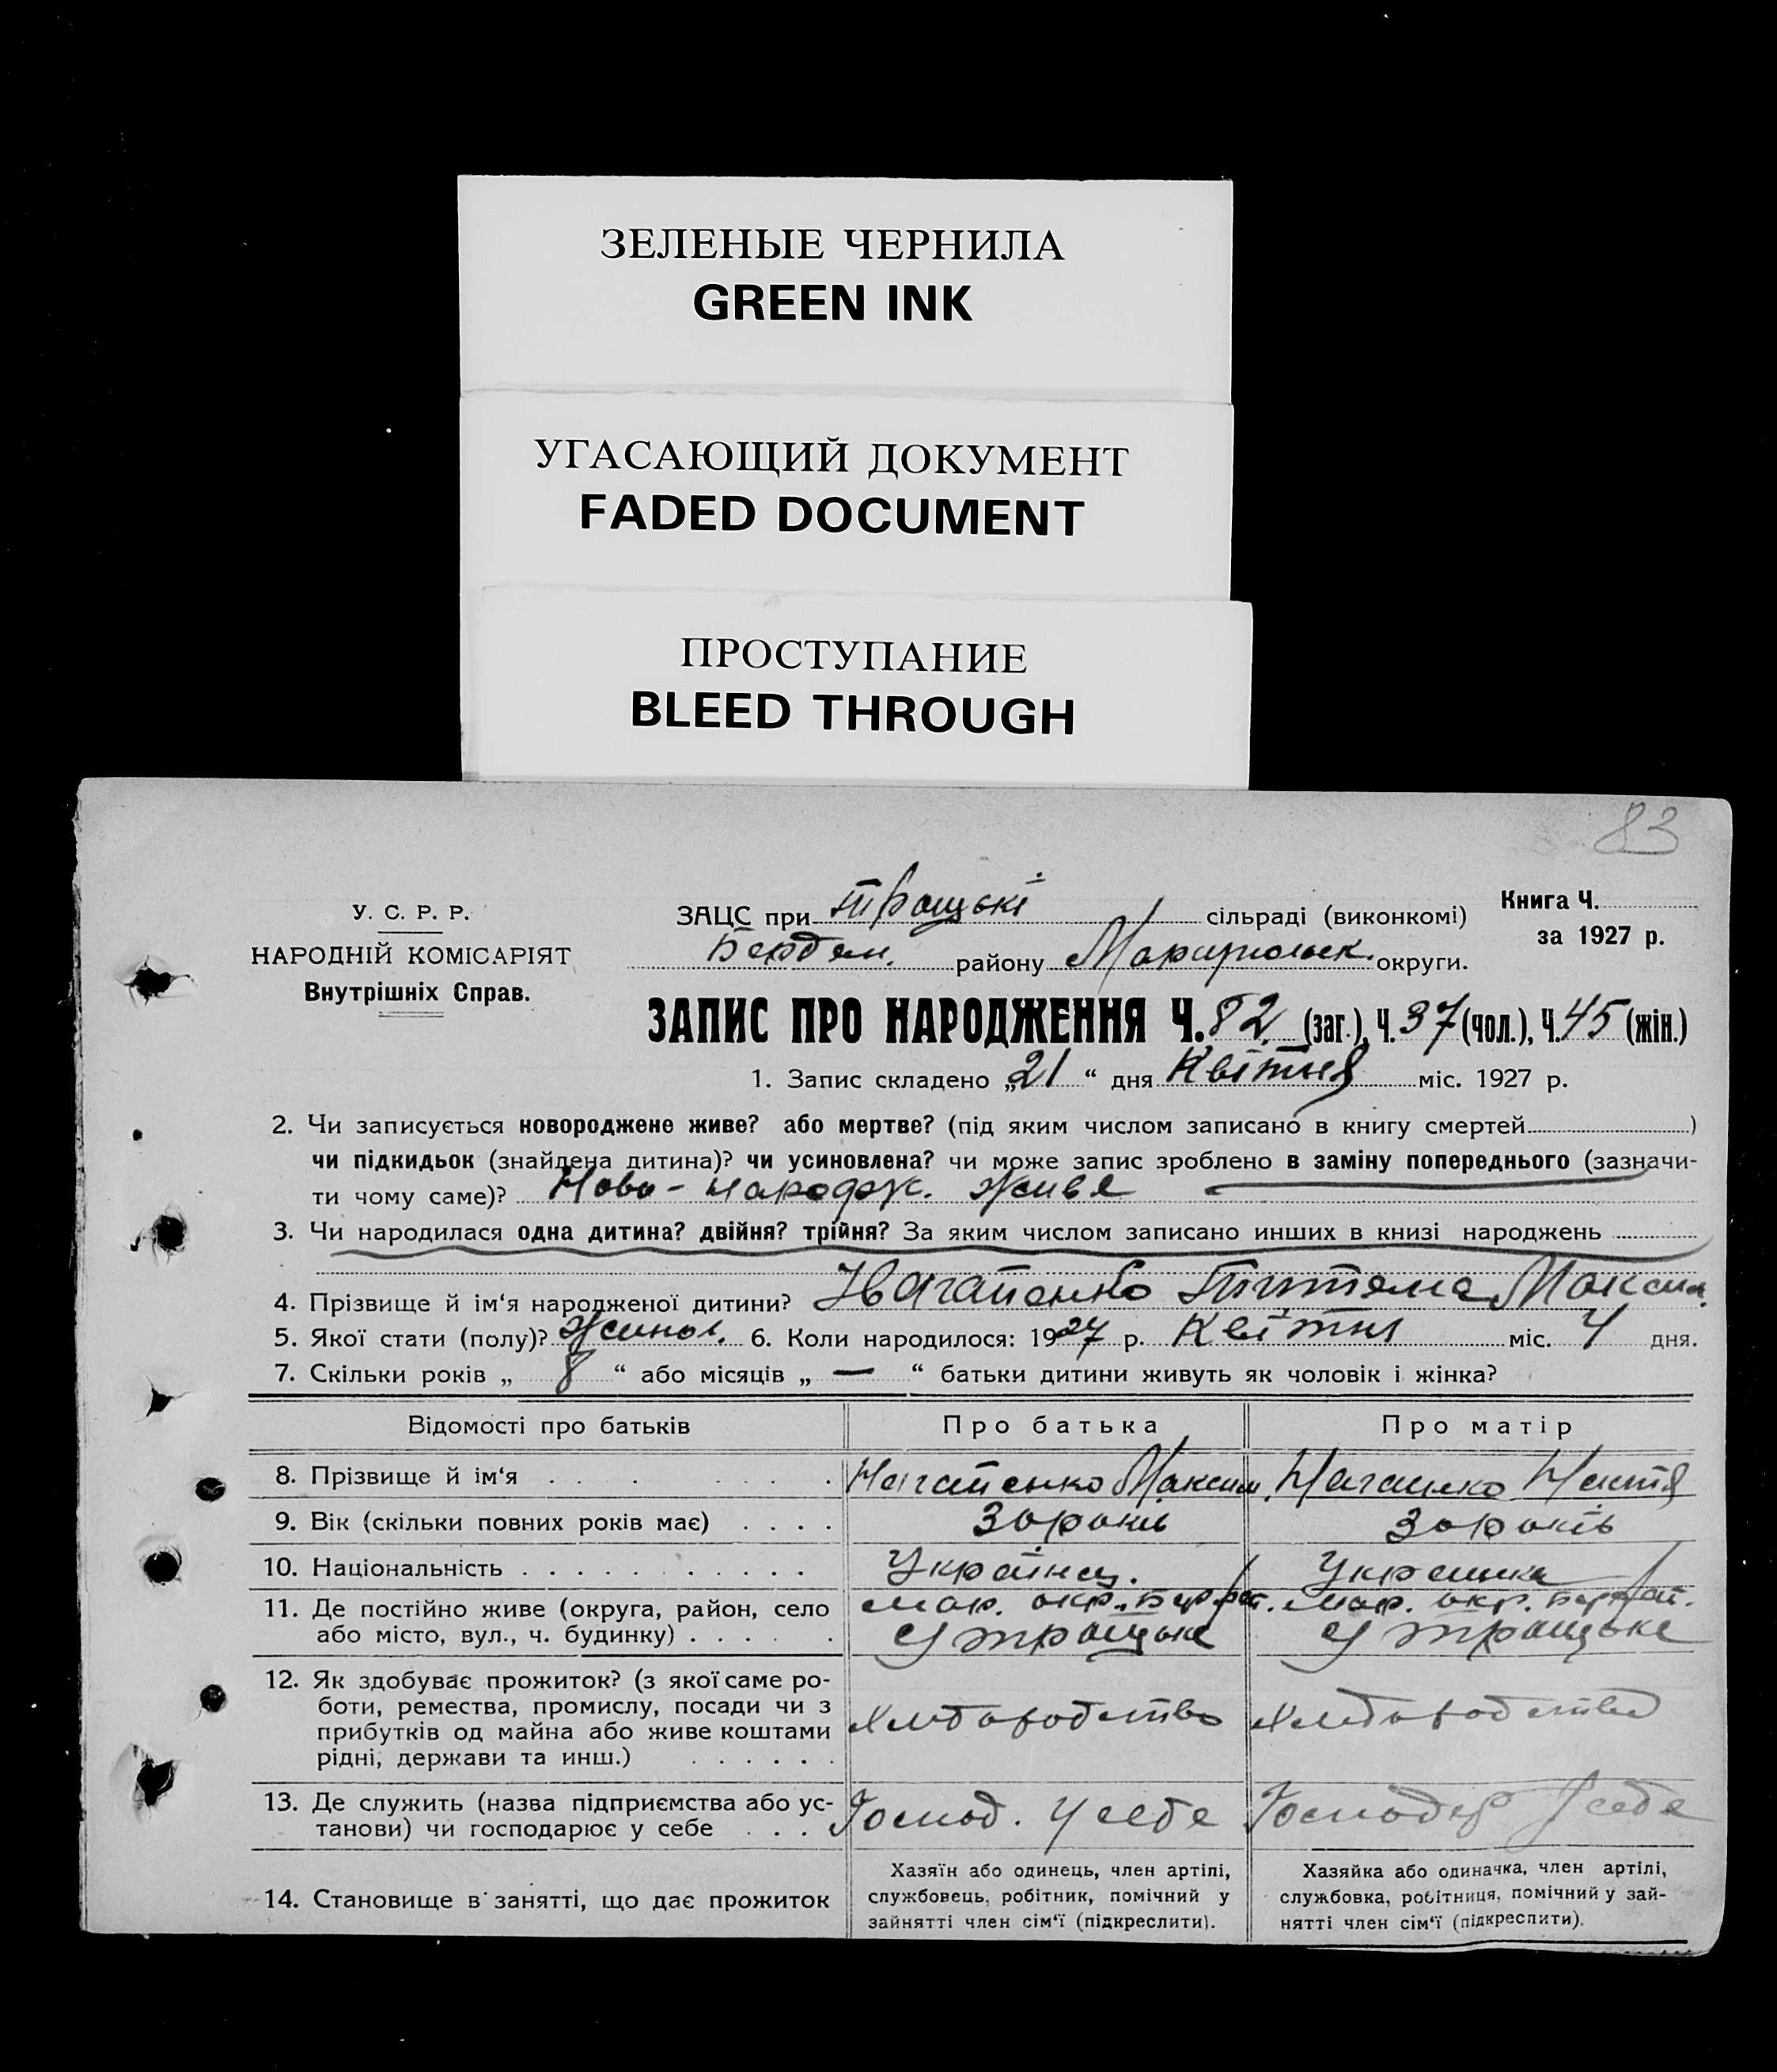 ЗЕЛЕНЫЕ ЧЕРНИЛА
GREEN INK
УГАСАЮЩИЙ ДОКУМЕНТ
FADED DOCUMENT
ПРОСТУПАНИЕ
BLEED THROUGH
83
У. С. Р. Р.
НАРОДНІЙ КОМІСАРІЯТ
Внутрішніх Справ.
ЗАЦС при Троцькі сільраді (виконкомі)
Бердян. району Маріупольск. округи.
Книга Ч.
за 1927 р.
ЗАПИС ПРО НАРОДЖЕННЯ Ч. 82 (заг.), Ч. 37 (чол.), Ч. 45 (жін.)
1. Запис складено „21“ дня Квітня міс. 1927 р.
2. Чи записується новороджене живе? або мертве? (під яким числом записано в книгу смертей )
чи підкидьок (знайдена дитина)? чи усиновлена? чи може запис зроблено в заміну попереднього (зазначи-
ти чому саме)? Ново-народж. живе
3. Чи народилася одна дитина? двійня? трійня? За яким числом записано инших в книзі народжень
4. Прізвище й ім‘я народженої дитини? Максим.
5. Якої стати (полу)? Жиноч. 6. Коли народилося: 1927 р. Квітня міс. 4 дня.
7. Скільки років „ 8 “ або місяців „ — “ батьки дитини живуть як чоловік і жінка?
Відомості про батьків
Про батька
Про матір
8. Прізвище й ім‘я Максим.
9. Вік (скільки повних років має) 30 років 30 років
10. Національність Українец. Украинка
11. Де постійно живе (округа, район, село Мар. окр. Мар. окр.
або місто, вул., ч. будинку)
12. Як здобуває прожиток? (з якої саме ро-
боти, ремества, промислу, посади чи з
прибутків од майна або живе коштами
рідні, держави та инш.)
Хлібородство Хлібородство
13. Де служить (назва підприємства або ус-
танови) чи господарює у себе
Господ. у себе Господар у себе
14. Становище в занятті, що дає прожиток
Хазяїн або одинець, член артілі,
службовець, робітник, помічний у
зайнятті член сім‘ї (підкреслити).
Хазяйка або одиначка, член артілі,
службовка, робітниця, помічний у зай-
нятті член сім‘ї (підкреслити).